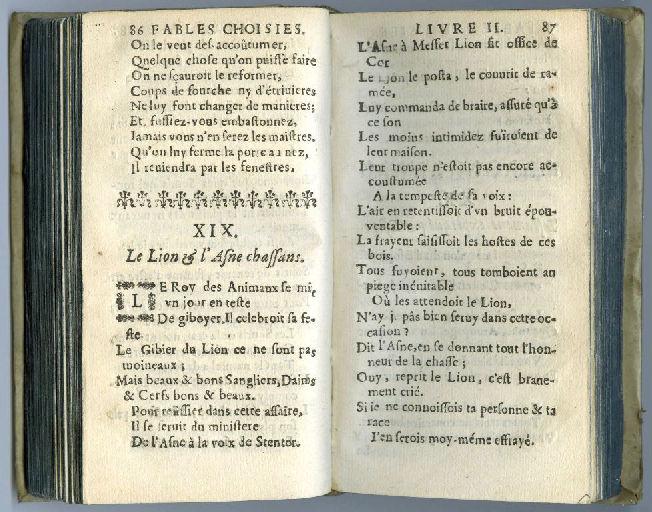 86 FABLES CHOISIES.
On le veut des-accoûtumer,
Quelque chose qu'on puisse faire
On ne sçauroit le reformer,
Coups de fourche ny d'étrivieres
Ne luy font changer de manieres;
Et, fussiez-vous embastonnez,
Iamais vous n'en serez les maistres.
Qu'on luy ferme la porte au nez,
Il reuiendra par les fenestres.
XIX.
Le Lion & l'Asne chassans.
LE Roy des Animaux se mit
vn jour en teste
De giboyer. Il celebroit sa fe-
ste.
Le Gibier du Lion ce ne sont pas
moineaux;
Mais beaux & bons Sangliers, Daims
& Cerfs bons & beaux.
Pour reüssir dans cette affaire,
Il se seruit du ministere
De l'Asne à la voix de Stentor.
LIVRE II. 87
L'Asne à Messer Lion fit office de
Cor
Le Lyon le posta, le couurit de ra-
mée,
Luy commanda de braire, assuré qu'à
ce son
Les moins intimidez fuïroient de
leur maison.
Leur troupe n'estoit pas encore ac-
coustumée
A la tempeste de sa voix:
L'air en retentissoit d'vn bruit épou-
ventable:
La frayeur saisissoit les hostes de ces
bois.
Tous fuyoient, tous tomboient au
piege inéuitable
Où les attendoit le Lion,
N'ay-j. pas bien seruy dans cette oc-
casion?
Dit l'Asne, en se donnant tout l'hon-
neur de la chasse;
Ouy, reprit le Lion, c'est braue-
ment crié.
Si ie ne connoissois ta personne & ta
race
I'en serois moy-méme effrayé.